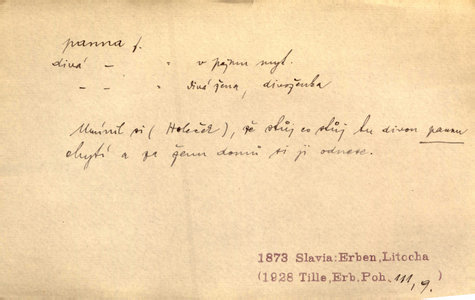 panna f.
divá – " v pojmu myt.
– – " divá žena, divoženka
Umínil si (Holeček), že stůj co stůj tu divou pannu
chytí a za ženu domů si ji odnese.
1873 Slavia:Erben,Litocha
(1928 Tille,Erb.Poh. III, 9.)